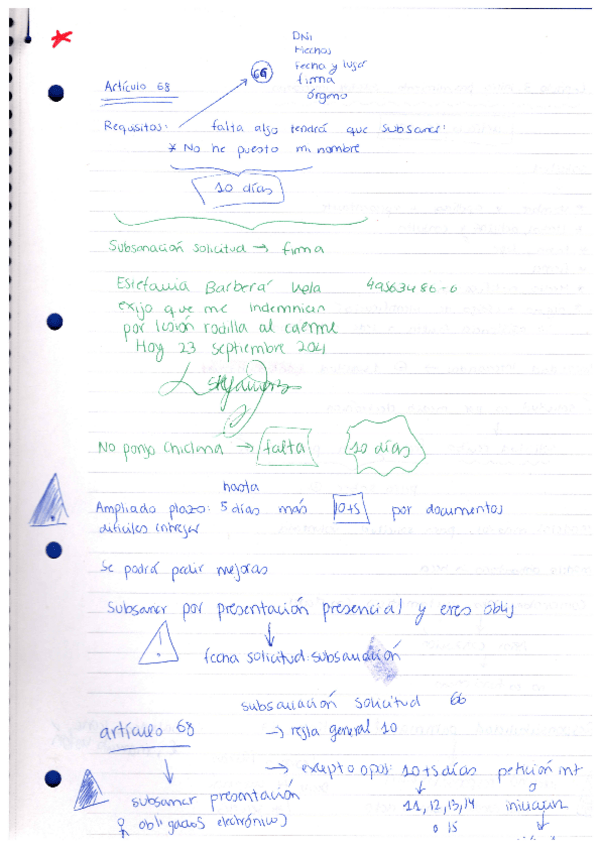 DNI
Hechos
Fecha y lugar
firma
órgano
66
Artículo 68
Requisitos: falta algo tendrá que subsanar:
* No he puesto mi nombre
10 días
Subsanación solicitud → firma
Estefania Barberá Vela 49563486-0
exijo que me indemnicen
por lesión rodilla al caerme
Hoy 23 septiembre 2021
No pongo Chiclana → falta 10 días
hasta
Ampliado plazo: 5 días más 10+5 por documentos
dificiles entregar
Se podrá pedir mejoras
Subsanar por presentación presencial y eres oblig
fecha solicitud: subsanación
subsanación solicitud 66
artículo 68 → regla general 10
→ excepto opos: 10+5 días petición int
subsanar presentación 11, 12, 13, 14 o
obligados electrónico) o 15